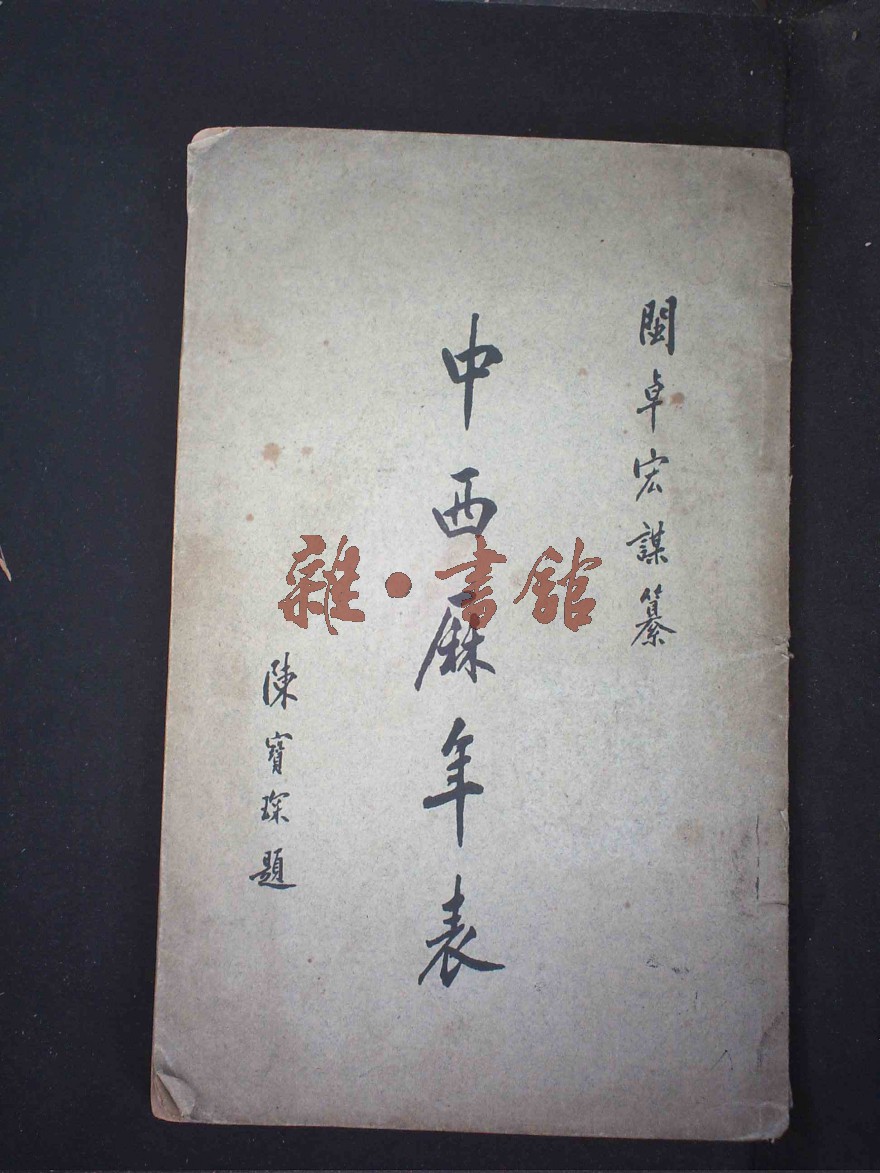 閩卓宏謀纂
中西厤年表
陳寶琛題
雜·書館